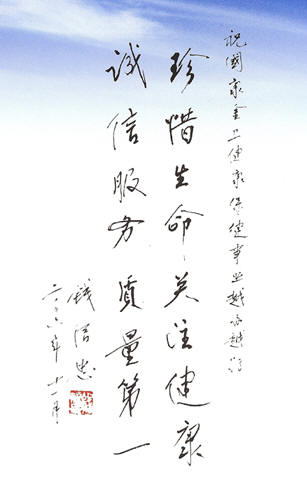 祝國康金卫健康保健事业越办越好
珍惜生命 关注健康
诚信服务 質量第一
钱信忠
二〇〇六年十一月